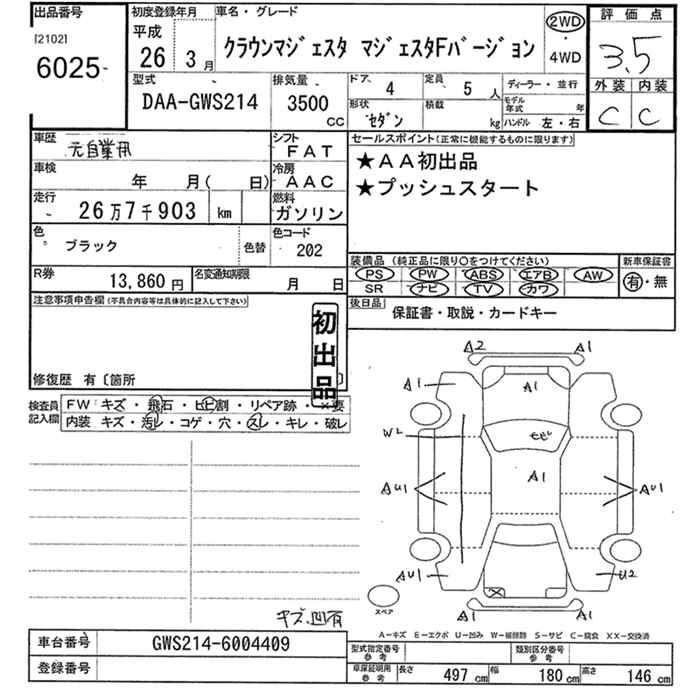 出品番号
[2102]
6025-
初度登録年月
平成
26
3月
車名・グレード
クラウンマジェスタ マジェスタFバージョン
2WD
・
4WD
評価点
3.5
外装 内装
C C
型式
DAA-GWS214
排気量
3500
cc
ドア
4
定員
5 人
形状
セダン
積載
kg
ディーラー・並行
モデル年式
年
ハンドル 左・右
車歴
元自業用
シフト
FAT
車検
年 月( 日)
冷房
AAC
走行
26万7千903
km
燃料
ガソリン
色
ブラック
色替
色コード
202
R券
13,860円
名変通知期限
月 日
セールスポイント(正常に機能するものに限ります)
★AA初出品
★プッシュスタート
装備品 (純正品に限り〇をつけてください)
PS PW ABS エアB AW
SR ナビ TV カワ
新車保証書
有・無
後日品
保証書・取説・カードキー
注意事項申告欄(不具合内容等は具体的に記入して下さい)
初出品
修復歴 有〔箇所 〕
検査員記入欄
FW: キズ・飛石・ヒビ割・リペア跡・×要
内装 キズ・汚レ・コゲ・穴・スレ・キレ・破レ
A2 A1
A1 A1
W2 ヒビ
A1
AU1 AU1
AU1 U2
A1 A1
スペア
キズ、凹有
A-キズ E-エクボ U-凹み W-補修跡 S-サビ C-腐食 XX-交換済
車台番号
GWS214-6004409
登録番号
型式指定番号
参考
類別区分番号
参考
車庫証明用
参考
長さ
497 cm
幅
180 cm
高さ
146 cm